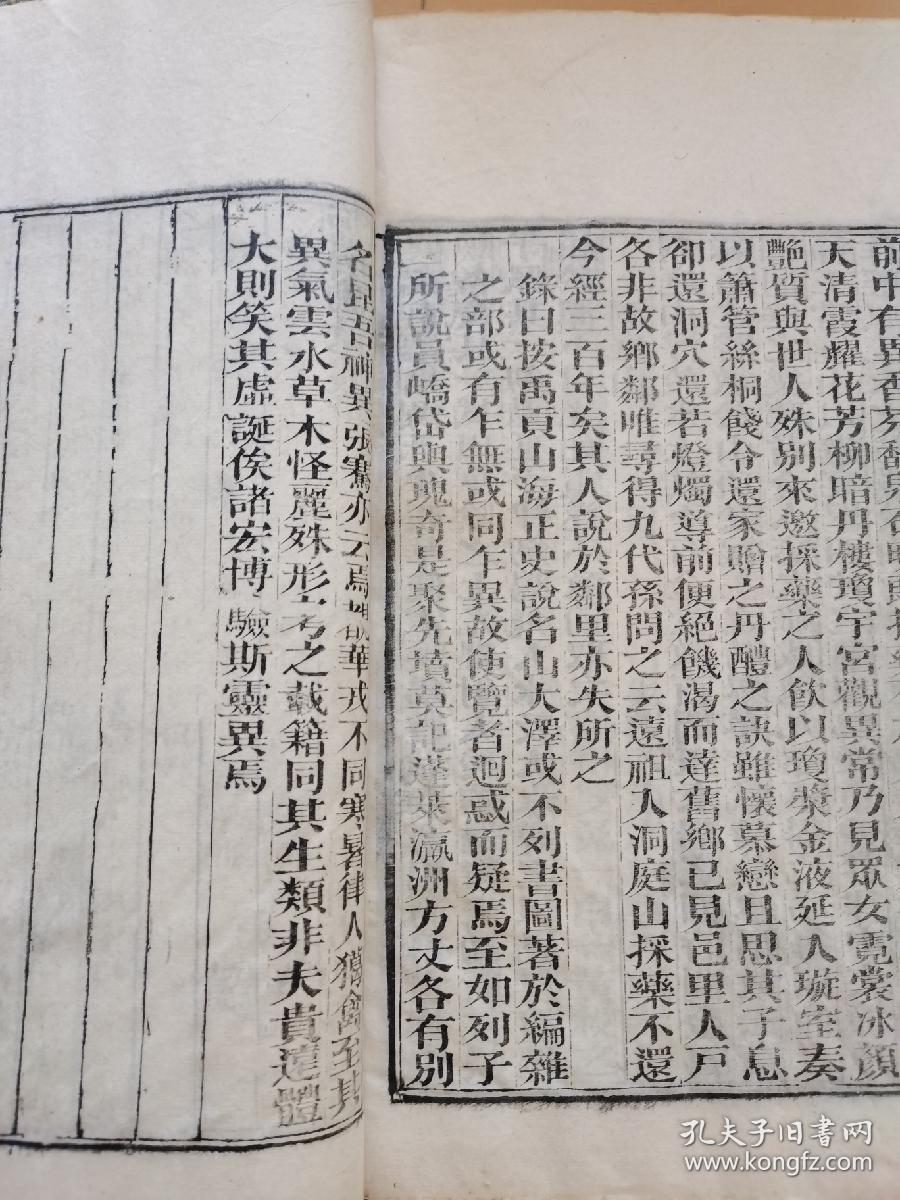 前中有異香芬馥泉石明
天清霞耀花芳柳暗丹樓瓊宇宮觀異常乃見眾女霓裳冰顏
艷質與世人殊別來邀採藥之人飲以瓊漿金液延人璇室奏
以簫管絲桐餞令還家贈之丹醴之訣雖懷慕戀且思其子息
卻還洞穴還若燈燭導前便絕饑渴而達舊鄉已見邑里人戶
各非故鄉鄰唯尋得九代孫問之云遠祖入洞庭山採藥不還
今經三百年矣其人說於鄰里亦失所之
錄曰按禹貢山海正史說名山大澤或不列書圖著於編雜
之部或有乍無或同乍異故使覽者迴惑而疑焉至如列子
所說員嶠岱輿瑰奇是聚先墳莫記蓬萊瀛洲方丈各有別
名昆吾神異張騫亦云焉華戎不同寒暑律人獸禽至其
異氣雲水草木怪麗殊形考之載籍同其生類非夫貴遠體
大則笑其虛誕俟諸宏博驗斯靈異焉
孔夫子旧书网
www.kongfz.com